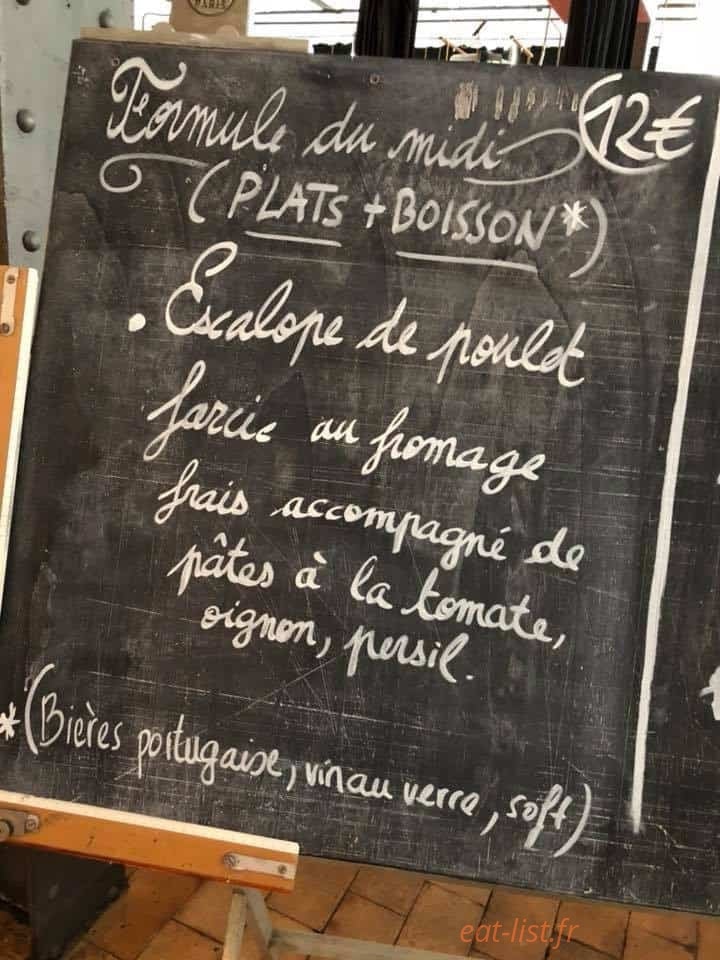 Formule du midi 12€
(PLATS + BOISSON*)
• Escalope de poulet
farcie au fromage
frais accompagné de
pâtes à la tomate,
oignon, persil.
*(Bières portugaise, vin au verre, soft)
eat-list.fr